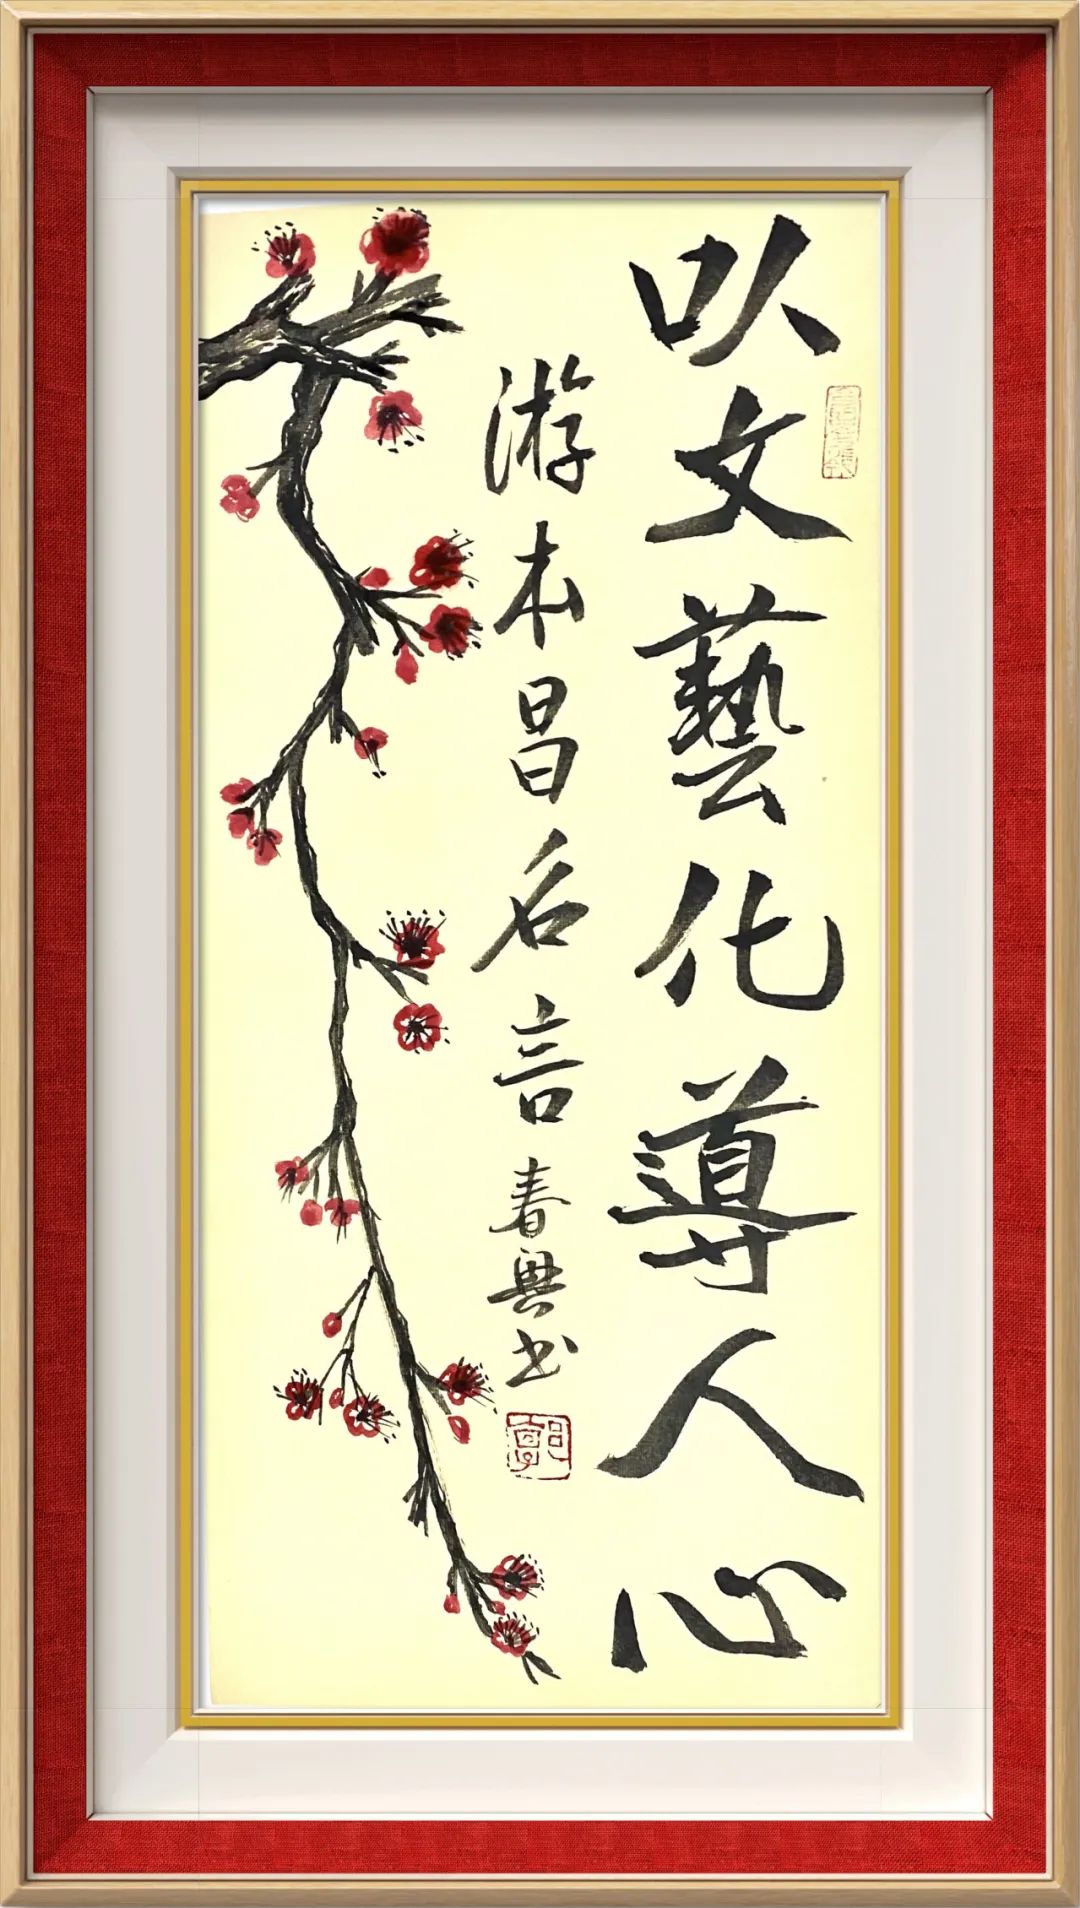 以文藝化導人心
游本昌名言
春興书
郭